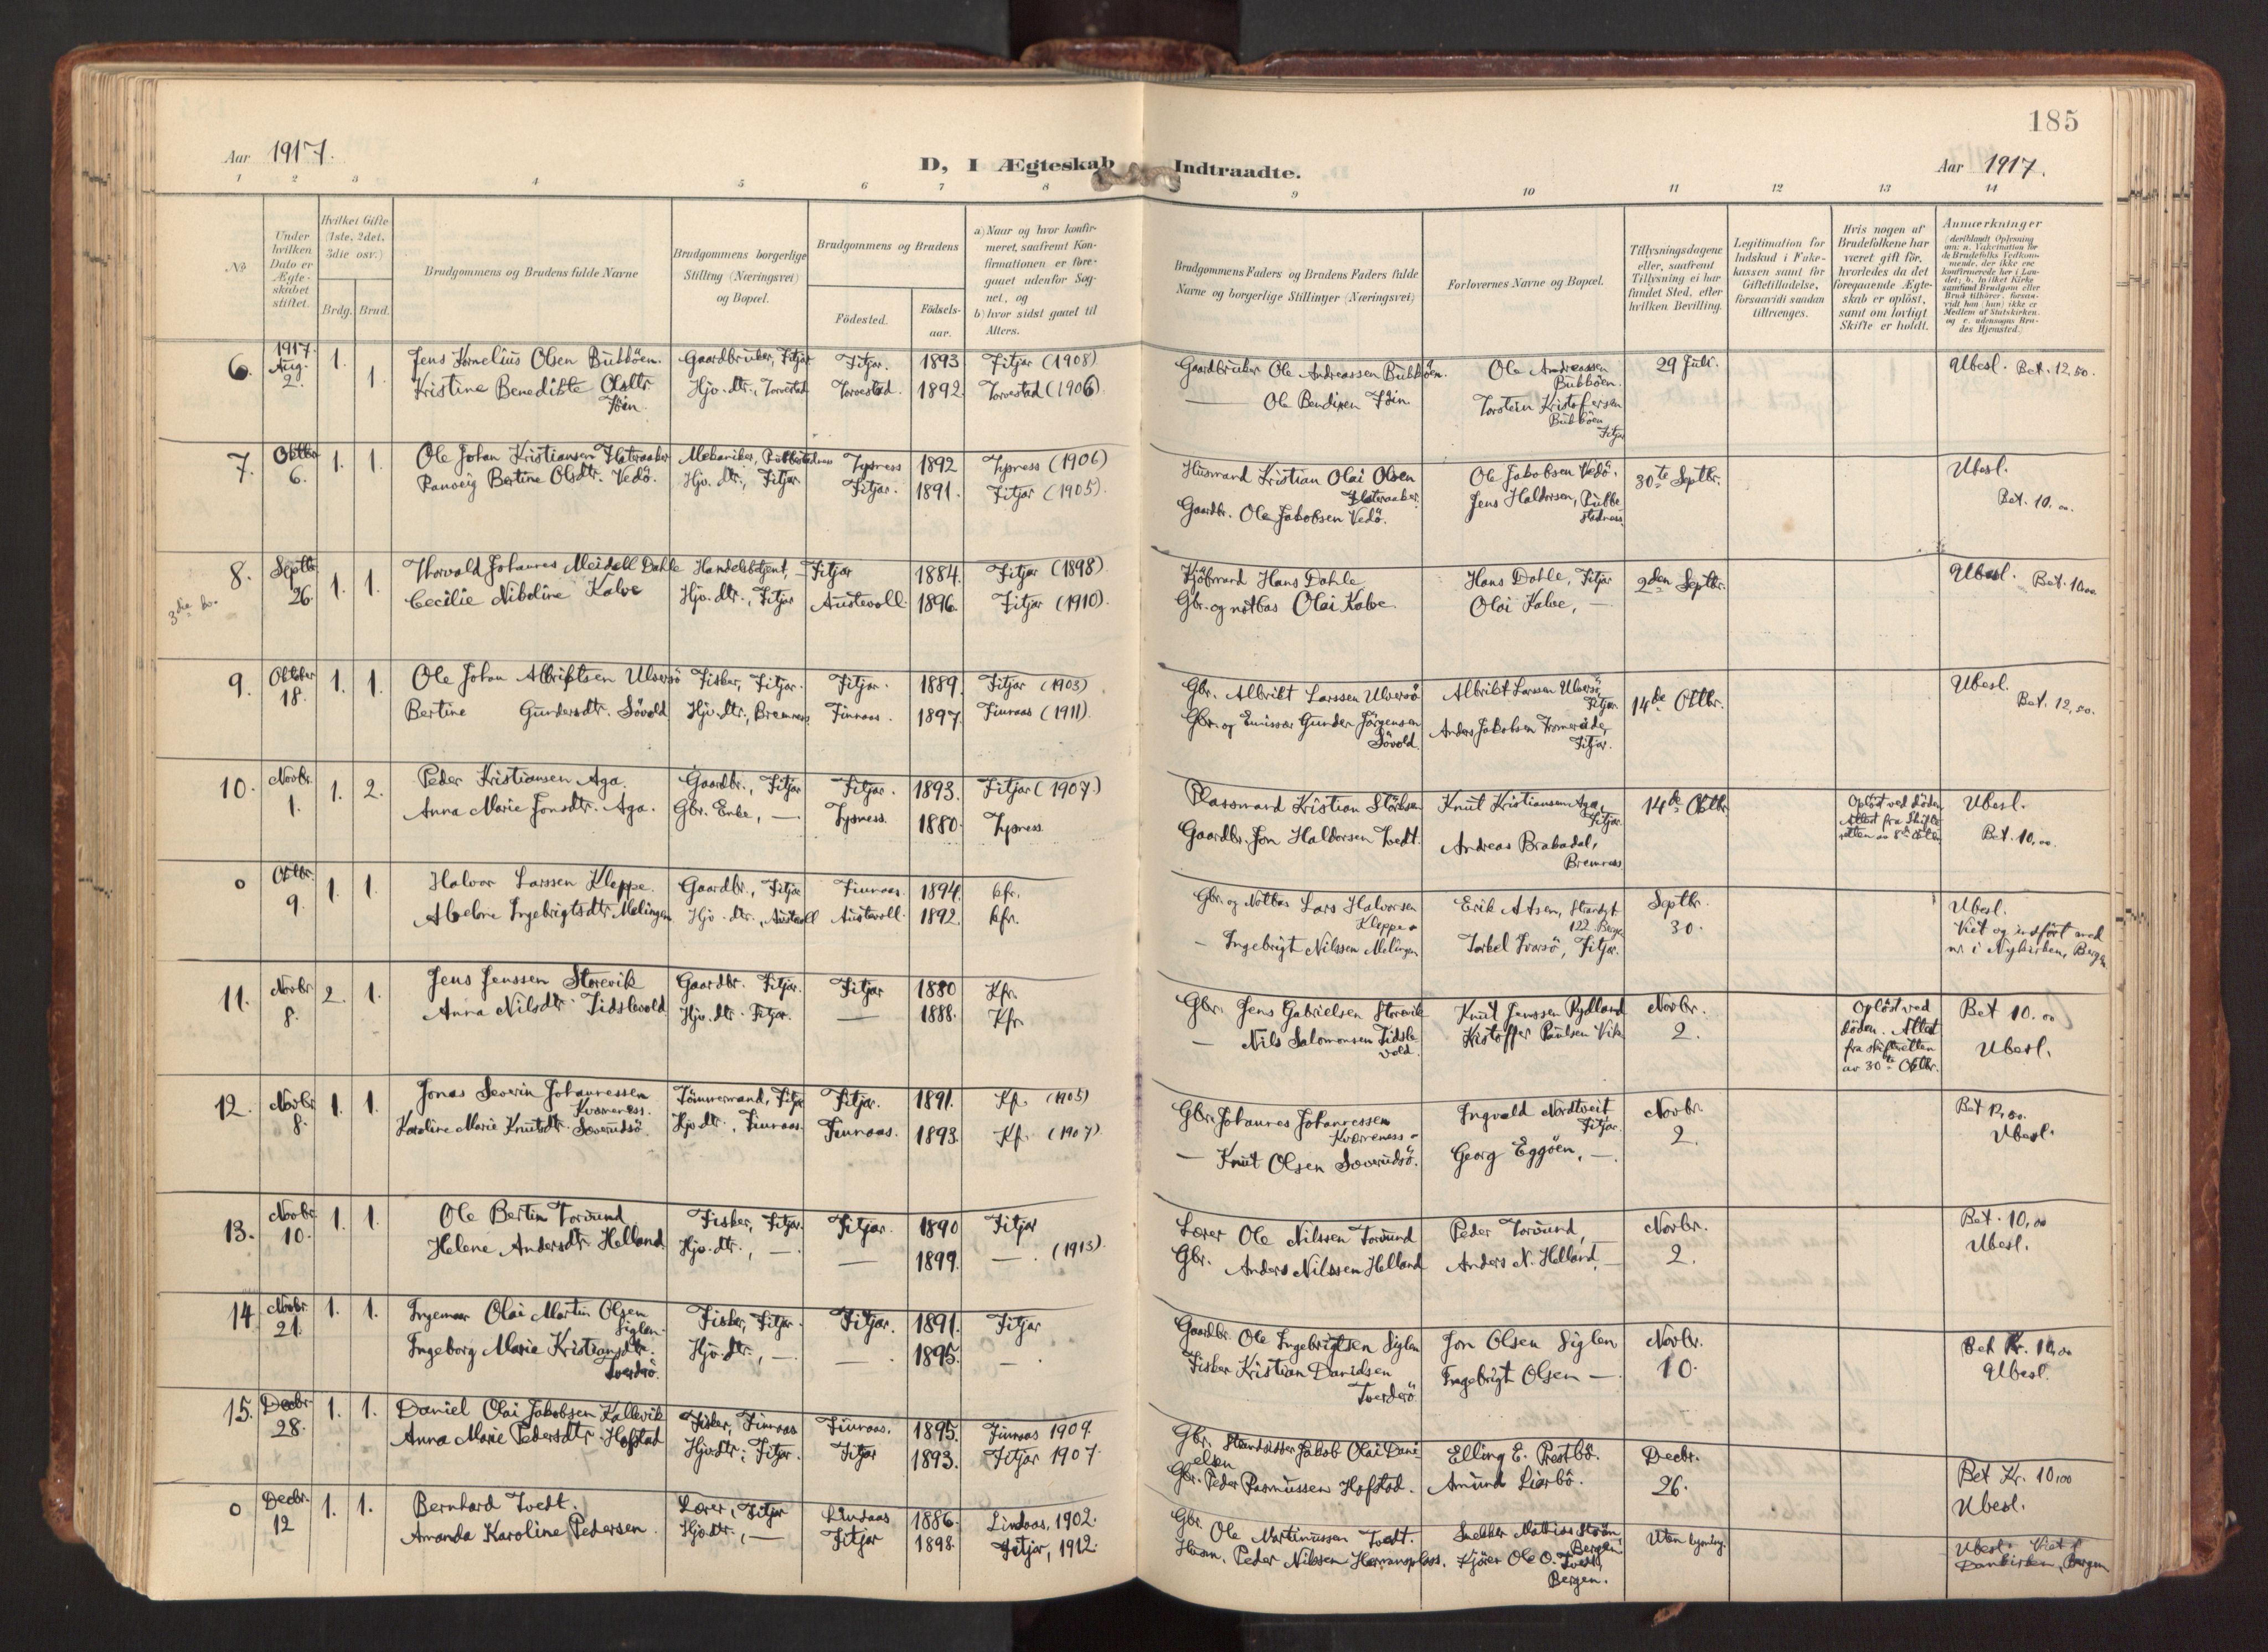 185
Aar 1917.
D, I Ægteskab Indtraadte.
Aar 1917.
1 2 3 4 5 6 7 8 9 10 11 12 13 14
No
Under hvilken Dato er Ægteskabet stiftet.
Hvilket Gifte (1ste, 2det, 3die osv.)
Brdg. Brud.
Brudgommens og Brudens fulde Navne
Brudgommens borgerlige Stilling (Næringsvei) og Bopæl.
Brudgommens og Brudens
Födested.
Födselsaar.
a) Naar og hvor konfirmeret, saafremt Konfirmationen er foregaaet udenfor Sognet, og
b) hvor sidst gaaet til Alters.
Brudgommens Faders og Brudens Faders fulde Navne og borgerlige Stillinger (Næringsvei)
Forlovernes Navne og Bopæl.
Tillysningsdagene eller, saafremt Tillysning ei har fundet Sted, efter hvilken Bevilling.
Legitimation for Indskud i Enkekassen samt for Giftetilladelse, forsaavidt saadan tiltrænges.
Hvis nogen af Brudefolkene har været gift för, hvorledes da det foregaaende Ægteskab er oplöst, samt om lovligt Skifte er holdt.
Anmærkninger
6. 1917 Aug. 2. 1. 1.
Jens Kornelius Olsen Bukköen. Gaardbruker, Fitjar Fitjar. 1893 Fitjar (1908)
Kristine Benedikte Olsdtr. Hjv. dtr., Torvestad Torvestad. 1892. Torvestad (1906)
Gaardbruker Ole Andreassen Bukköen. Ole Andreassen Bukköen. 29 Juli. Ubesl. Bet. 12,50.
Ole Bendixen Torstein Kristofersen Bukköen Fitjar
7. Oktbr 6. 1. 1.
Ole Johan Kristiansen Mekaniker, Rubbestadnes Tysness 1892 Tysness (1906)
Ranveig Bertine Olsdtr. Vedö. Hjv. dtr., Fitjar Fitjar. 1891. Fitjar (1905).
Husmand Kristian Olai Olsen Ole Jakobsen Vedö. 30te Septbr. Ubesl.
Gaardbr. Ole Jakobsen Vedö. Jens Haldorsen, Rubbestadness Bet. 10,00.
8. Septbr. 26. 1. 1.
Thorvald Johannes Meidell Dahle Handelsbetjent, Fitjar 1884. Fitjar (1898)
Cecilie Nikoline Kalve Hjv. dtr., Fitjar Austevoll. 1896. Fitjar (1910).
Kjöbmand Hans Dahle Hans Dahle, Fitjar 2den Septbr. Ubesl. Bet. 10,00.
Gbr. og notbas Olai Kalve. Olai Kalve, —
9. Oktober 18. 1. 1.
Ole Johan Albriktsen Ulversö Fisker, Fitjar. Fitjar. 1889. Fitjar (1903)
Bertine Gundersdtr. Sövold Hjv. dtr., Bremnes Finnaas. 1897. Finnaas (1911).
Gbr. Albrikt Larssen Ulversö Albrikt Larssen Ulversö Fitjar. 14de Oktbr. Ubesl.
Gbr. og Emissær Gunder Jörgensen Sövold. Anders Jakobsen Fitjar. Bet. 12,50.
10. Novbr. 1. 1. 2.
Peder Kristiansen Aga. Gaardbr., Fitjar Fitjar. 1893. Fitjar (1907.)
Anna Marie Jonsdtr. Aga. Gbr. Enke, — Tysness. 1880. Tysness.
Plassmand Kristian Knut Kristiansen Aga, Fitjar. 14de Oktbr. Oplöst ved döden. Attest fra Skifteretten av 8de Oktbr. Ubesl.
Gaardbr. Jon Haldorsen Tvedt. Andreas Brakadal, Bremness Bet. 10,00.
0 Oktbr. 9. 1. 1.
Halvor Larssen Kleppe. Gaardbr., Fitjar Finnaas. 1894. kfr.
Abelone Ingebrigtsdtr. Melingen Hjv. dtr., Austevoll Austevoll. 1892. kfr.
Gbr. og Notbas Lars Halvorsen Kleppe Erik Atsen, Strandgt 122. Bergen Septbr. 30. Ubesl.
— Ingebrigt Nilssen Melingen Torkel Ivarsö, Fitjar. Viet og indfört med nr. i Nykirken, Bergen
11. Novbr. 8. 2. 1.
Jens Jenssen Storevik Gaardbr. Fitjar. Fitjar 1880 Kfr.
Anna Nilsdtr. Tidslevold Hjv. dtr. Fitjar. — 1888. Kfr
Gbr. Jens Gabrielsen Storevik Knut Jenssen Rydland Novbr. 2. Oplöst ved döden. Attest fra skifteretten av 30te Oktbr. Bet 10.00
— Nils Salomonsen Tidslevold. Kristoffer Paulsen Vik Ubesl.
12. Novbr. 8. 1. 1.
Jonas Severin Johannessen Kværneness. Tömmermand, Fitjar Fitjar. 1891. Kf. (1905)
Karoline Marie Knutsdtr. Söverudsö. Hjv. dtr., Finnaas. Finnaas. 1893. Kf. (1907).
Gbr. Johannes Johannessen Kværneness Ingvald Nordtveit Fitjar. Novbr. 2. Bet 12,00.
— Knut Olsen Söverudsö. Georg Eggöen, —. Ubesl.
13. Novbr. 10. 1. 1.
Ole Bertin Torsund Fisker, Fitjar. Fitjar. 1890 Fitjar
Helene Andersdtr. Helland. Hjv. dtr., — — 1899. — (1913).
Lærer Ole Nilssen Torsund Peder Torsund, — Novbr. 2. Bet. 10,00
Gbr. Anders Nilssen Helland Anders N. Helland, — Ubesl.
14. Novbr. 21. 1. 1.
Ingemar Olai Martin Olsen Siglen. Fisker, Fitjar. Fitjar. 1891. Fitjar
Ingeborg Marie Kristiansdtr. Tverdrö. Hjv. dtr., — — 1895. —
Gaardbr. Ole Ingebrigtsen Siglen Jon Olsen Siglen Novbr. 10. Bet Kr. 10,00
Fisker Kristian Danidsen Tverdrö Ingebrigt Olsen — Ubesl.
15. Decbr. 28. 1. 1.
Daniel Olai Jakobsen Kallevik Fisker, Finnaas Finnaas. 1895. Finnaas 1909.
Anna Marie Pedersdtr. Hofstad Hjv. dtr., Fitjar. Fitjar 1893. Fitjar 1907.
Gbr. Strandsidder Jakob Olai Danielsen Elling E. Prestbö. Decbr. 26. Bet Kr. 10,00
Gbr. Peder Rasmussen Hofstad. Amund Liarbö. Ubesl.
0 Decbr. 12 1. 1.
Bernhard Tvedt. Lærer, Fitjar Lindaas 1886. Lindaas, 1902.
Amanda Karoline Pedersen. Hjv. dtr., — Fitjar 1898. Fitjar, 1912.
Gbr. Ole Martinussen Tvedt. Snekker Mathias Bergen Uten lysning. Ubesl. Viet i Domkirken, Bergen
Husm. Peder Nilssen Hermansplass. Kjörer Ole O. Tvedt, Bergen.